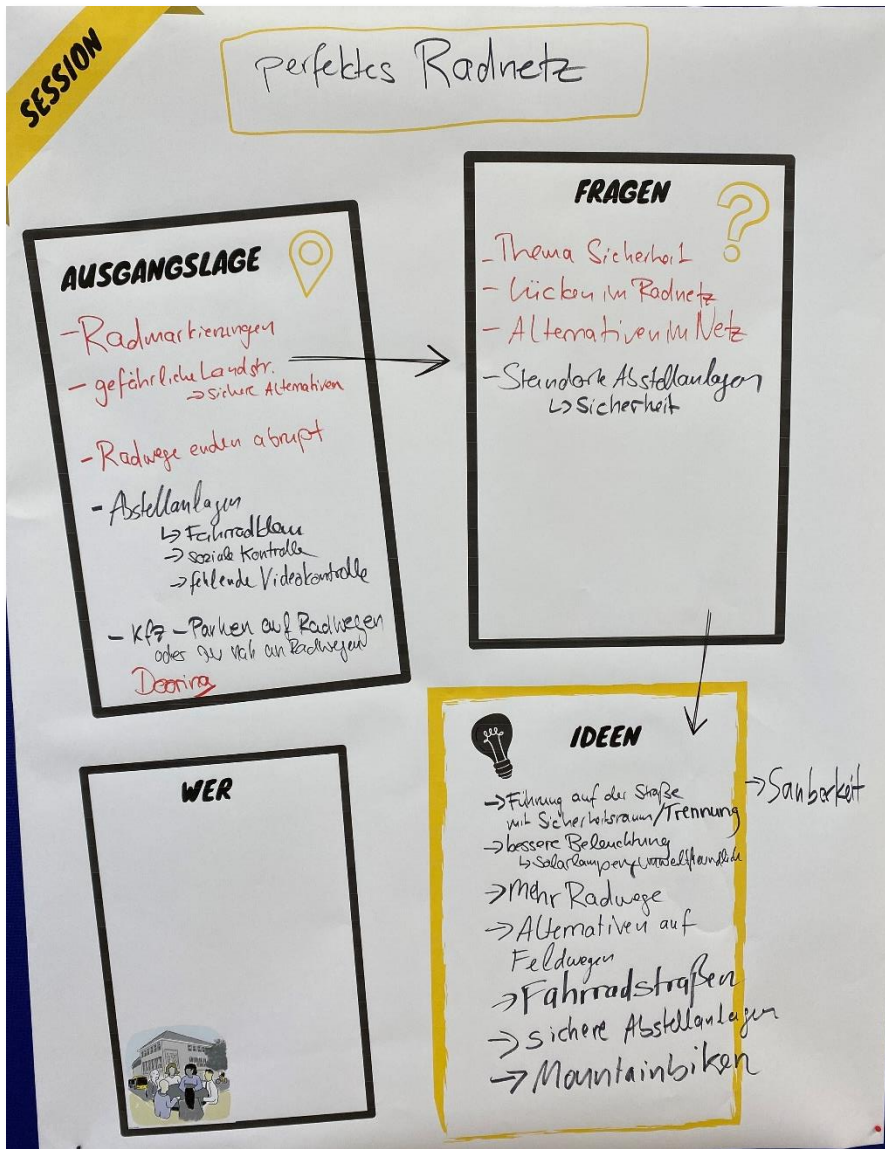 SESSION
perfektes Radnetz
AUSGANGSLAGE
- Radmarkierungen
- gefährliche Landstr.
→ sichere Alternativen
- Radwege enden abrupt
- Abstellanlagen
↳ Fahrradklau
→ soziale Kontrolle
→ fehlende Videokontrolle
- Kfz - Parken auf Radwegen
oder zu nah an Radwegen
Dooring
FRAGEN
?
- Thema Sicherheit
- Lücken im Radnetz
- Alternativen im Netz
- Standorte Abstellanlagen
↳ Sicherheit
IDEEN
→ Führung auf der Straße
mit Sicherheitsraum/Trennung
→ bessere Beleuchtung
↳ Solarlampen, umweltfreundlich
→ Mehr Radwege
→ Alternativen auf
Feldwegen
→ Fahrradstraßen
→ sichere Abstellanlagen
→ Mountainbiken
→ Sauberkeit
WER